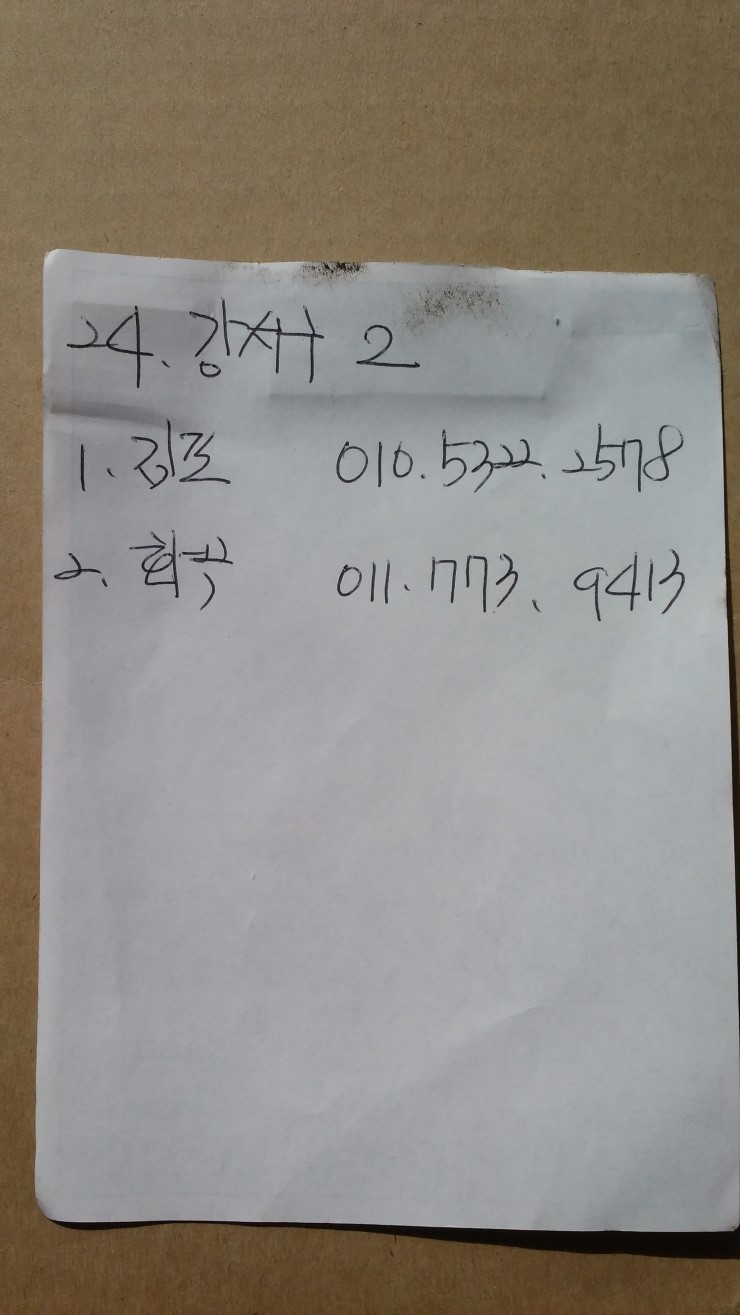 24. 강서구 2
1. 김포 010. 5322. 2578
2. 화곡 011. 773. 9413